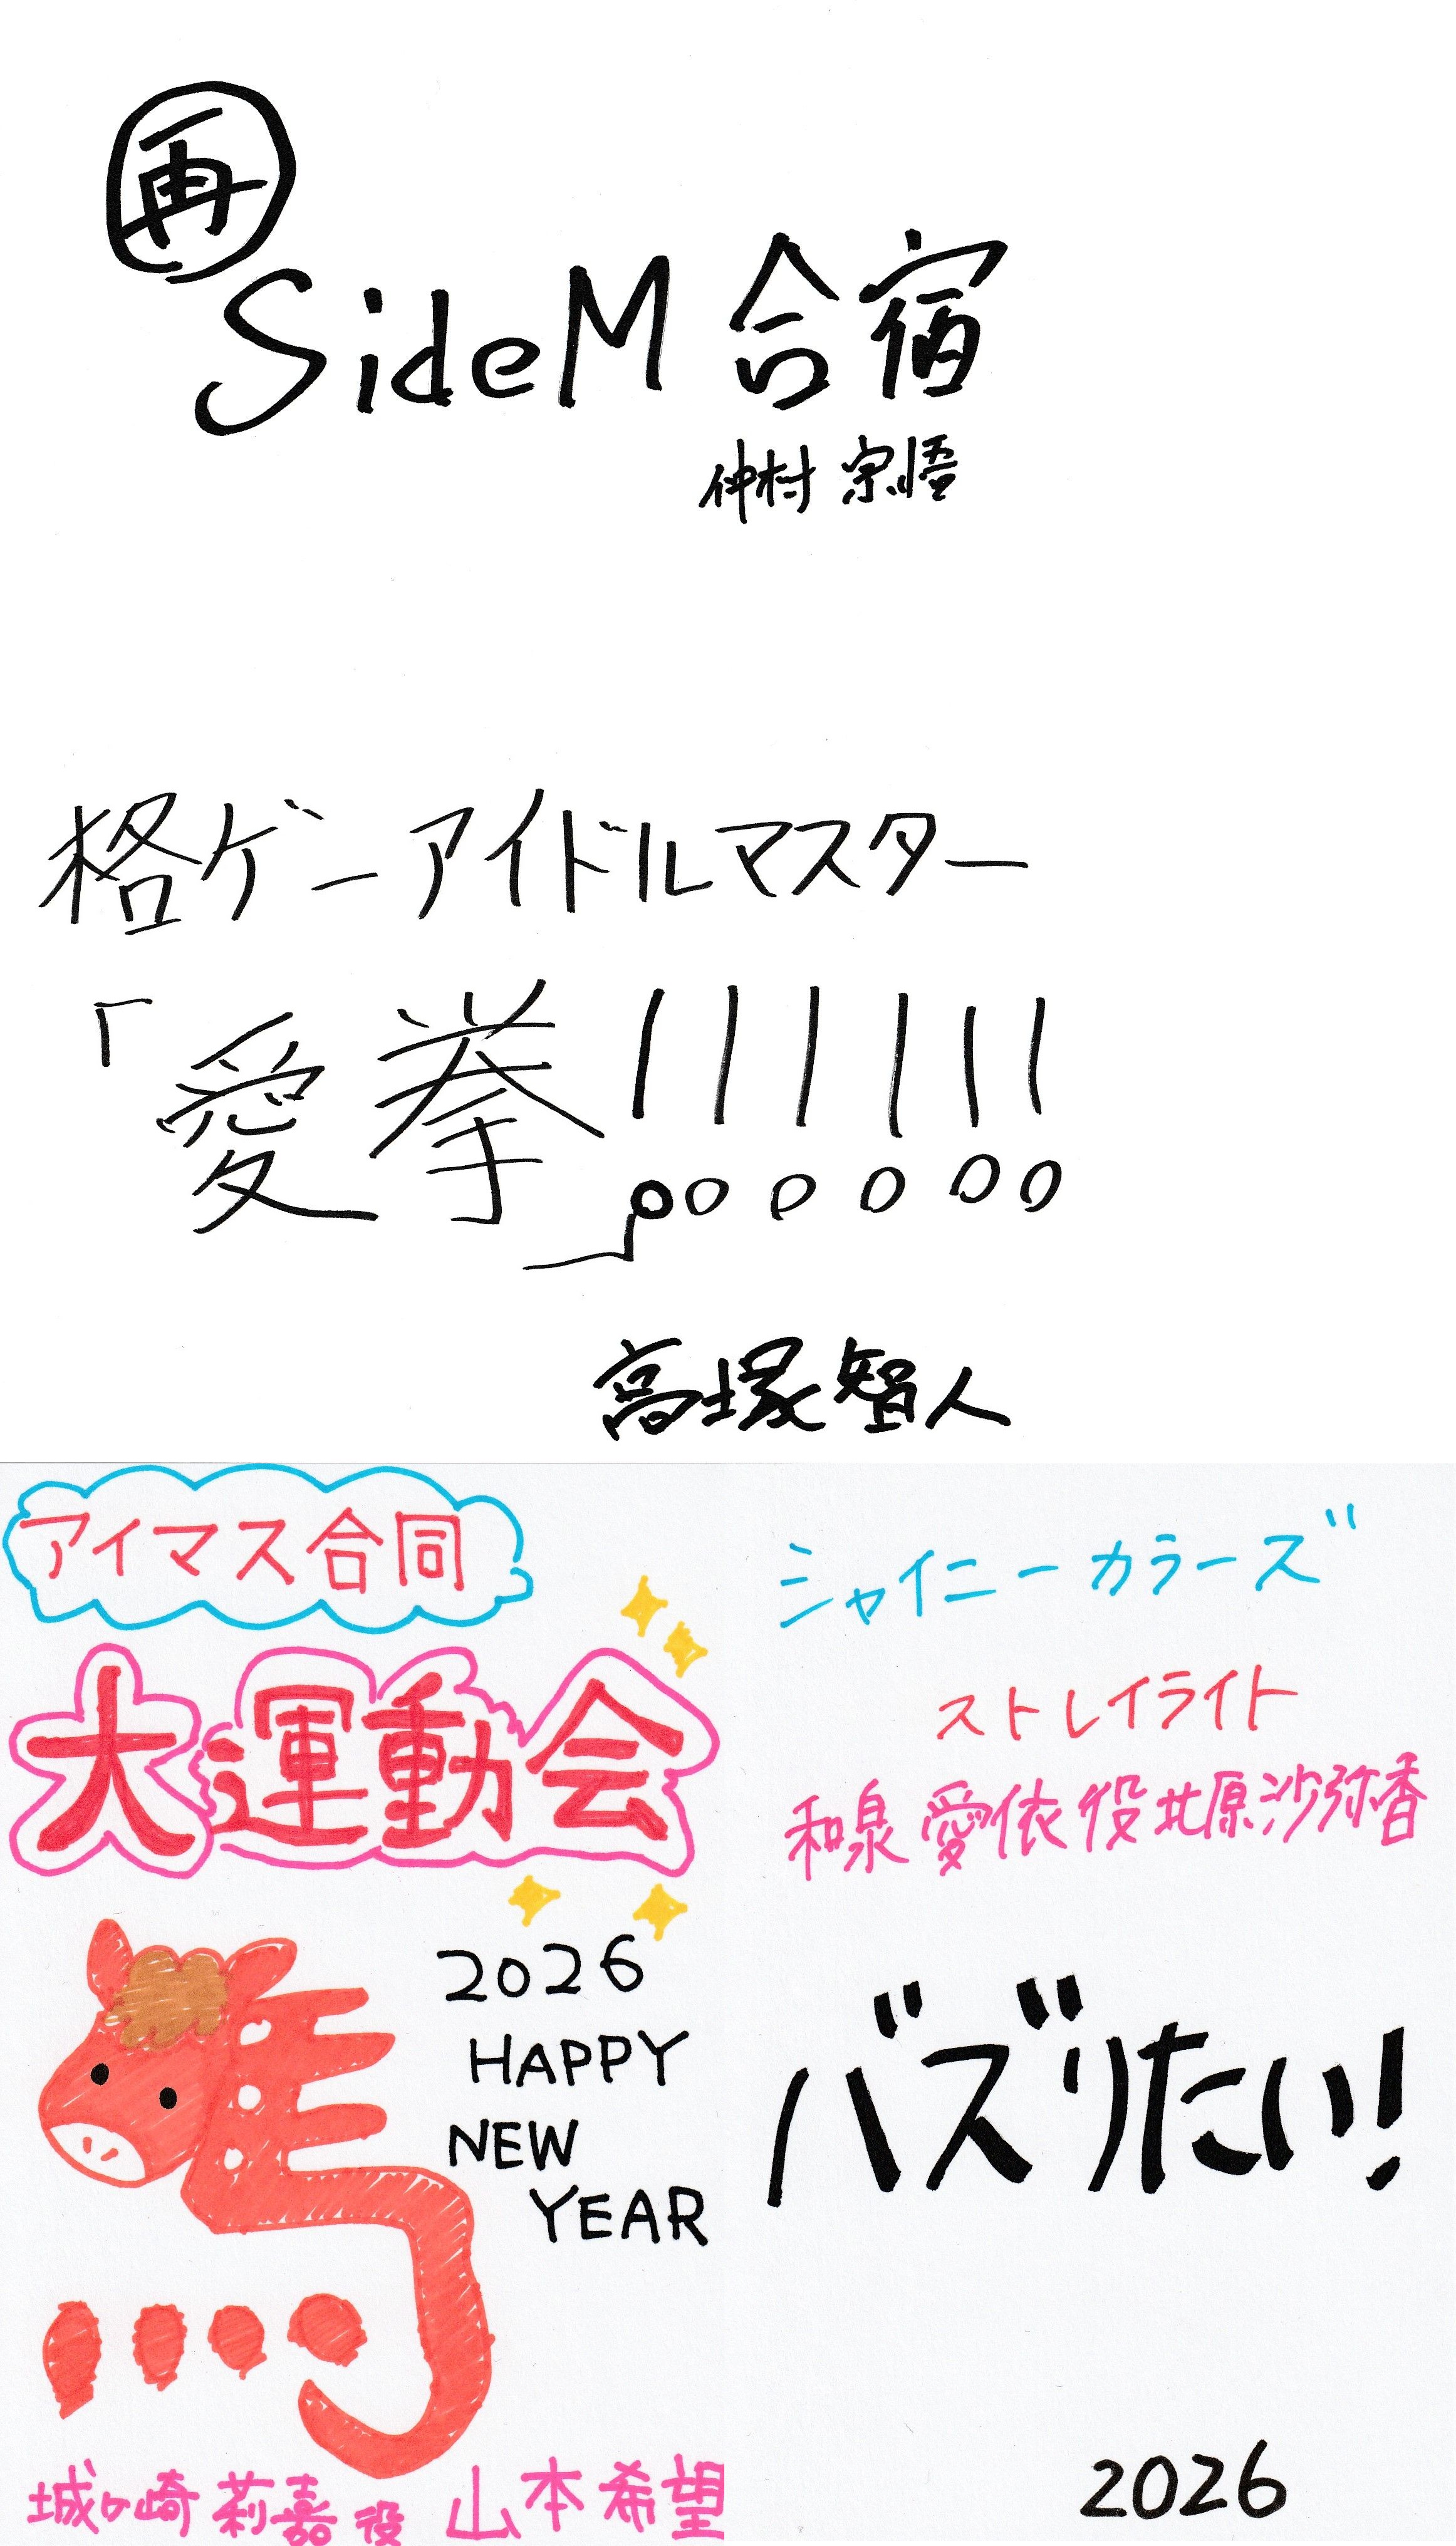 再
SideM 合宿
仲村 宗悟
格ゲーアイドルマスター
「愛拳!!!!!!」
高塚智人
アイマス合同
大運動会
2026
HAPPY
NEW
YEAR
城ヶ崎 莉嘉 役 山本希望
シャイニーカラーズ
ストレイライト
和泉 愛依 役 北原沙弥香
バズりたい!
2026